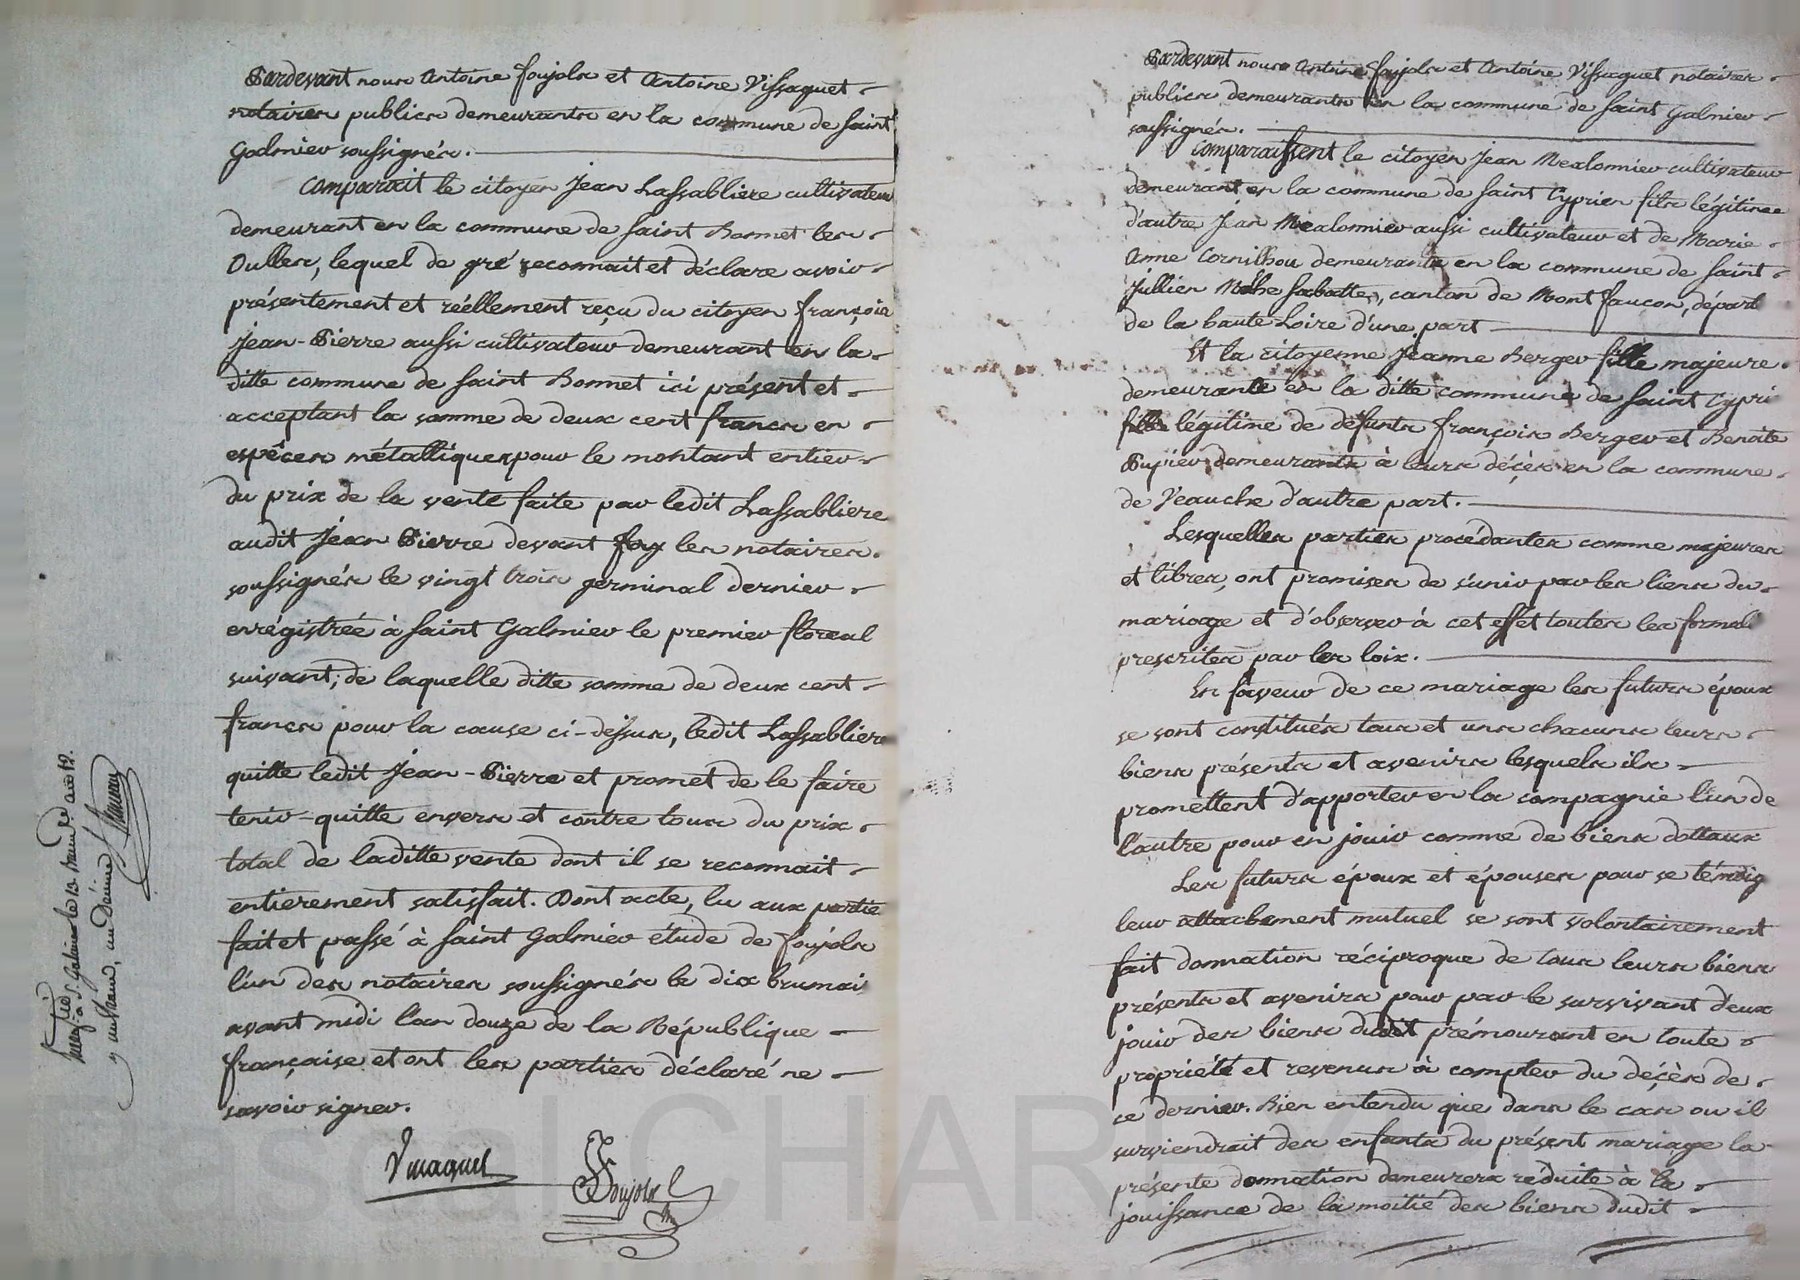 Pardevant nous Antoine foujols et Antoine Vissaguet
notaires publics demeurants en la commune de saint
Galmier soussignés.
Comparoit le citoyen Jean Lassabliere cultivateur
demeurant en la commune de saint Bonnet les
Oulles, lequel de gré reconnait et déclare avoir
présentement et réellement reçu du citoyen françois
Jean-Pierre aussi cultivateur demeurant en la
ditte commune de saint Bonnet ici présent et
acceptant la somme de deux cent francs en
espêces métalliques pour le montant entier
du prix de la vente faite par ledit Lassabliere
audit Jean Pierre devant les notaires
soussignés le vingt trois germinal dernier
enrégistrée à saint Galmier le premier floreal
suivant; de laquelle ditte somme de deux cent
francs pour la cause ci-dessus, ledit Lassabliere
quitte ledit Jean-Pierre et promet de le faire
tenir quitte envers et contre tous du prix
total de laditte vente dont il se reconnait
entierement satisfait. Dont acte, lu aux partie
fait et passé à saint Galmier étude de foujols
l'un des notaires soussignés le dix brumai
avant midi l'an douze de la République
française et ont les parties déclaré ne
savoir signer.
Vissaguet
Foujols
à S. Galmier le 13 brumaire an 12.
Pardevant nous Antoine foujols et Antoine Vissaguet notaires
publics demeurants en la commune de saint Galmier
soussignés.
Comparaissent le citoyen Jean Mealomier cultivateur
demeurant en la commune de saint Cyprien fils légitime
d'autre Jean Mealomier aussi cultivateur et de Marie
Anne Cornilhou demeurants en la commune de saint
Jullien Molhe sabatte, canton de Mont faucon, départ
de la haute Loire d'une part
Et la citoyenne Jeanne Berger fille majeure
demeurante en la ditte commune de saint Cypri
fille légitime de défunts françois Berger et Benoite
Pupier demeurants à leurs décès en la commune
de Veauche d'autre part.
Lesquelles parties procédantes comme majeures
et libres, ont promises de s'unir par les liens du
mariage et d'observer à cet effet toutes les formal
prescrites par les loix.
En faveur de ce mariage les futurs époux
se sont constitués tous et uns chacuns leurs
biens présents et avenirs lesquels ils
promettent d'apporter en la compagnie l'un de
l'autre pour en jouir comme de biens dottaux
Les futurs époux et épouses pour se témoig
leur attachement mutuel se sont volontairement
fait donnation réciproque de tous leurs biens
présents et avenirs pour par le survivant d'eux
jouir des biens dudit prémourant en toute
propriété et revenus à compter du décès de
ce dernier. Bien entendu que dans le cas ou il
surviendrait des enfants du présent mariage la
présente donnation demeurera réduite à la
jouissance de la moitié des biens dudit